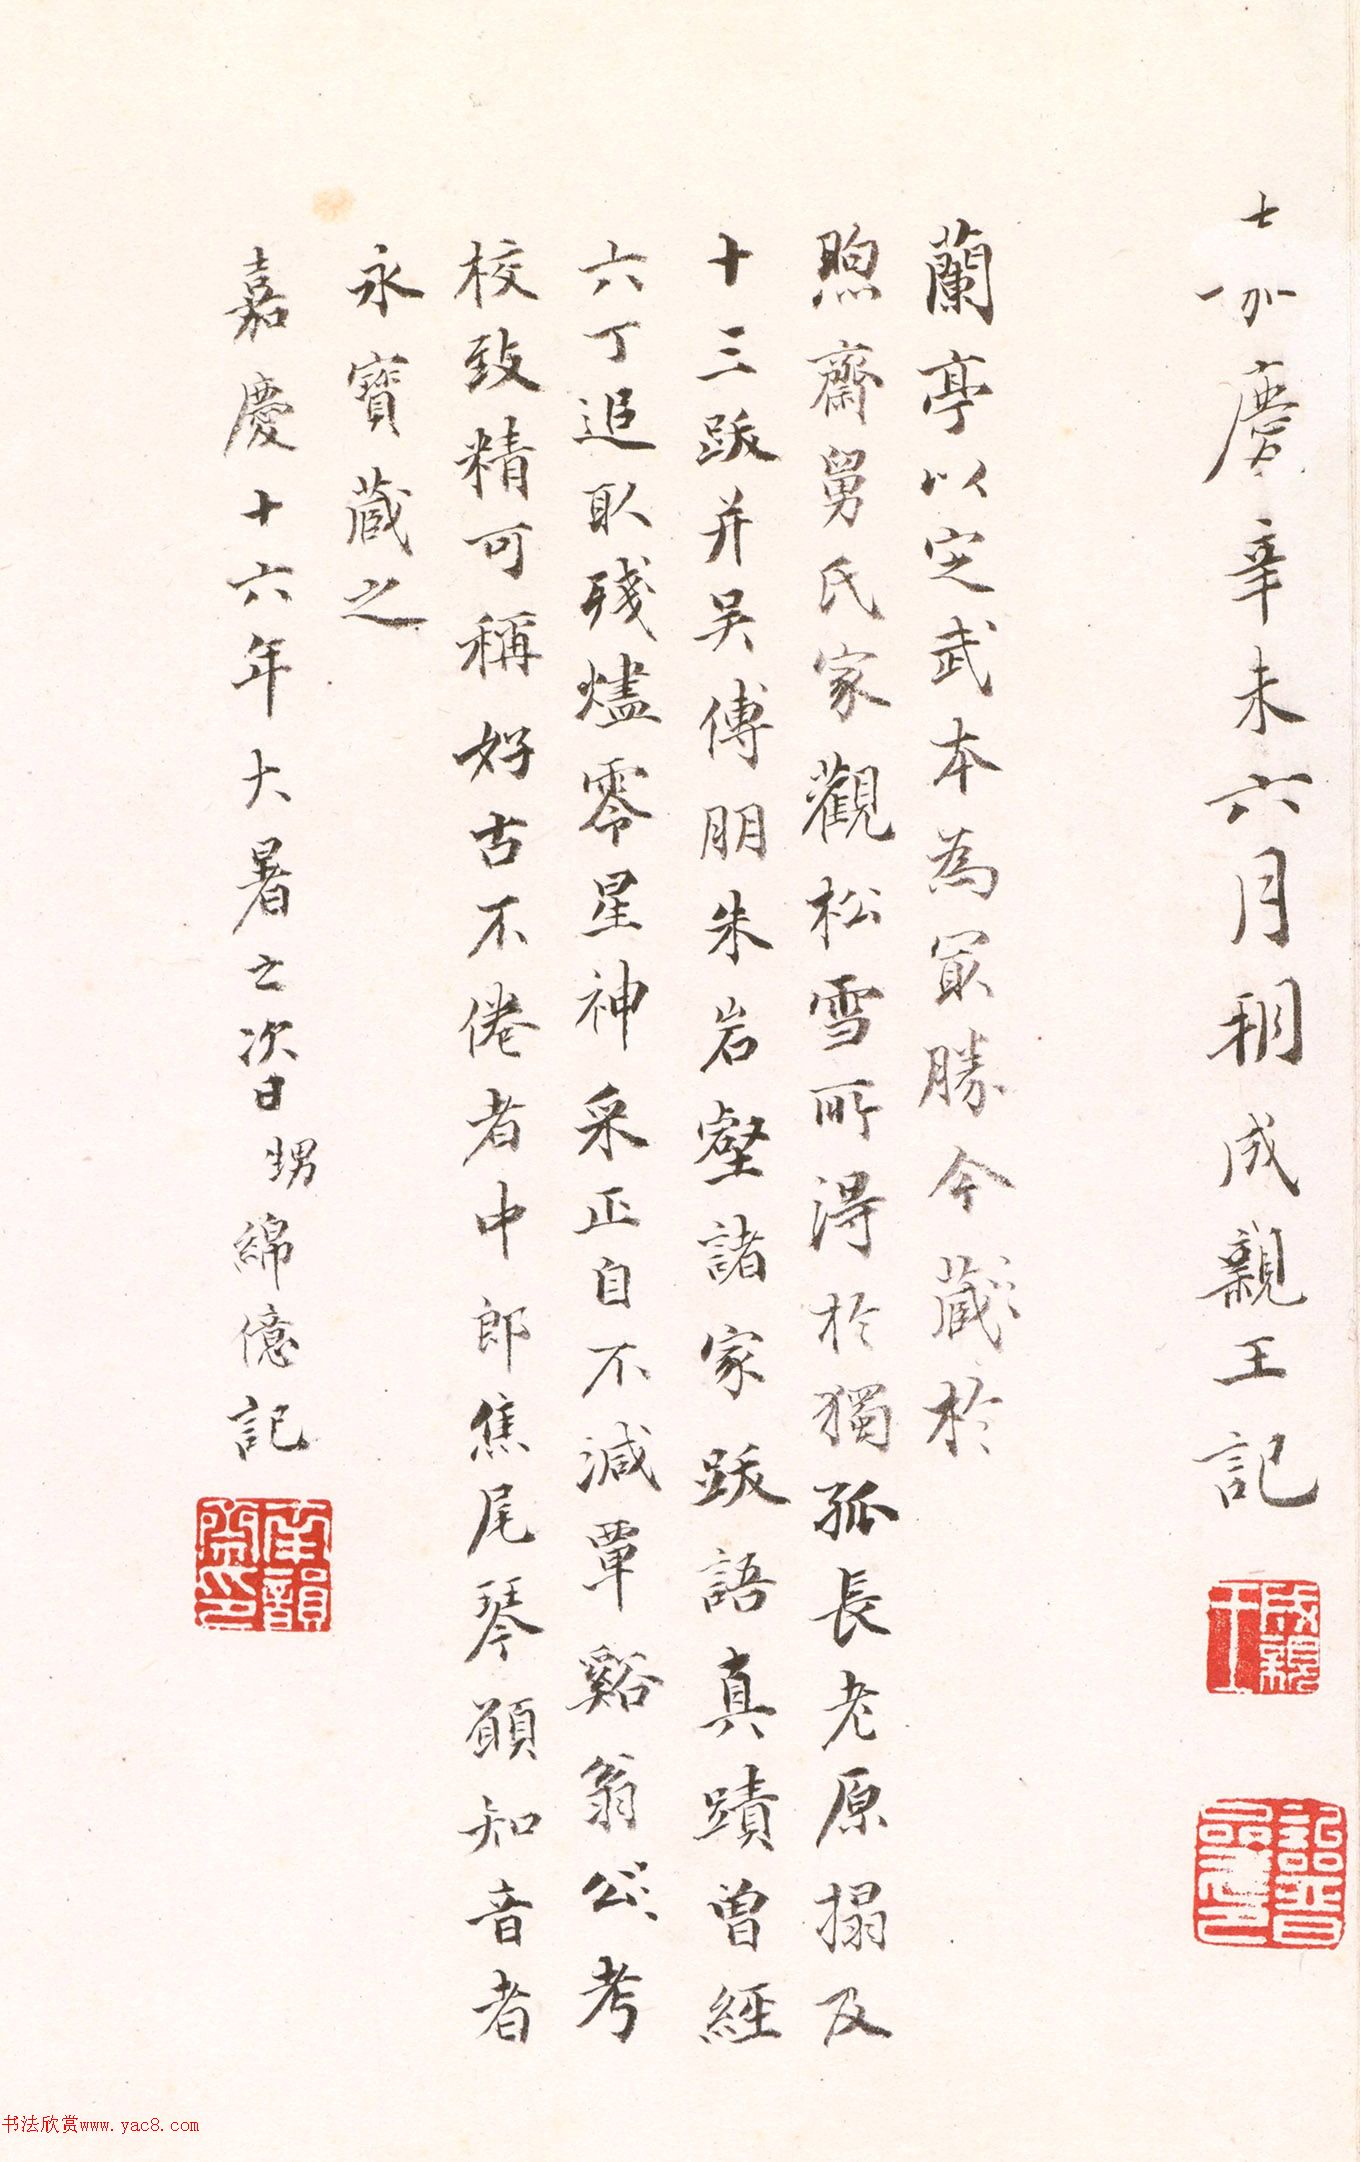 嘉慶辛未六月朔成親王記
成親王
詒晉齋印
蘭亭以定武本為㝡勝今藏於
煦齋舅氏家觀松雪所得於獨孤長老原搨及
十三跋并吳傅朋朱岩壑諸家跋語真蹟曾經
六丁追取殘燼零星神采正自不減覃谿翁公考
校致精可稱好古不倦者中郎焦尾琴願知音者
永寶藏之
嘉慶十六年大暑之次日甥綿億記
南韻齋印
书法欣赏www.yac8.com